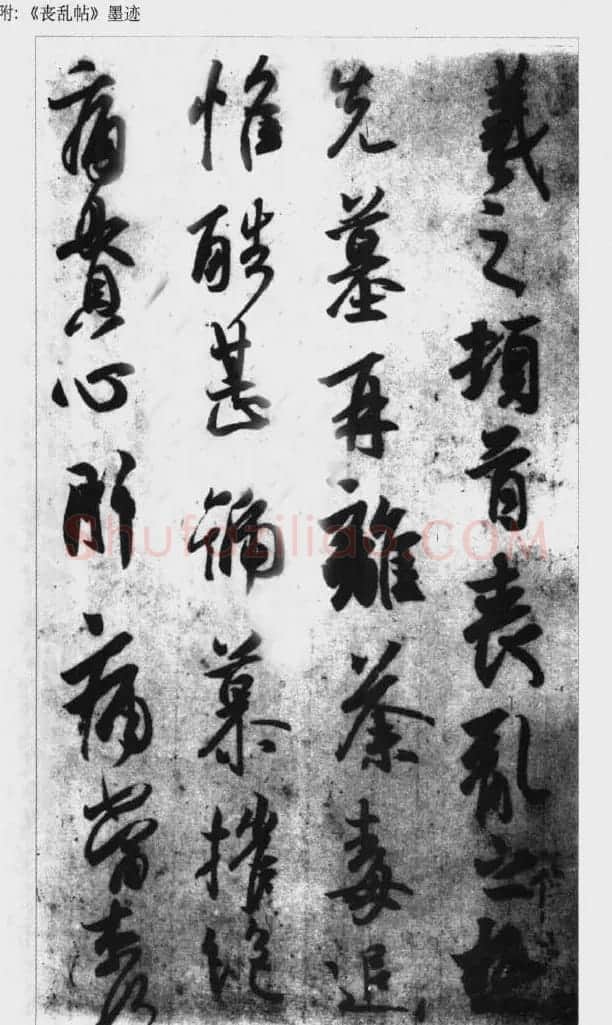 附:《丧乱帖》墨迹
羲之頓首喪亂之極
先墓再離荼毒追
惟酷甚號慕摧絕
痛貫心肝痛當奈何
Shufaziliao.COM